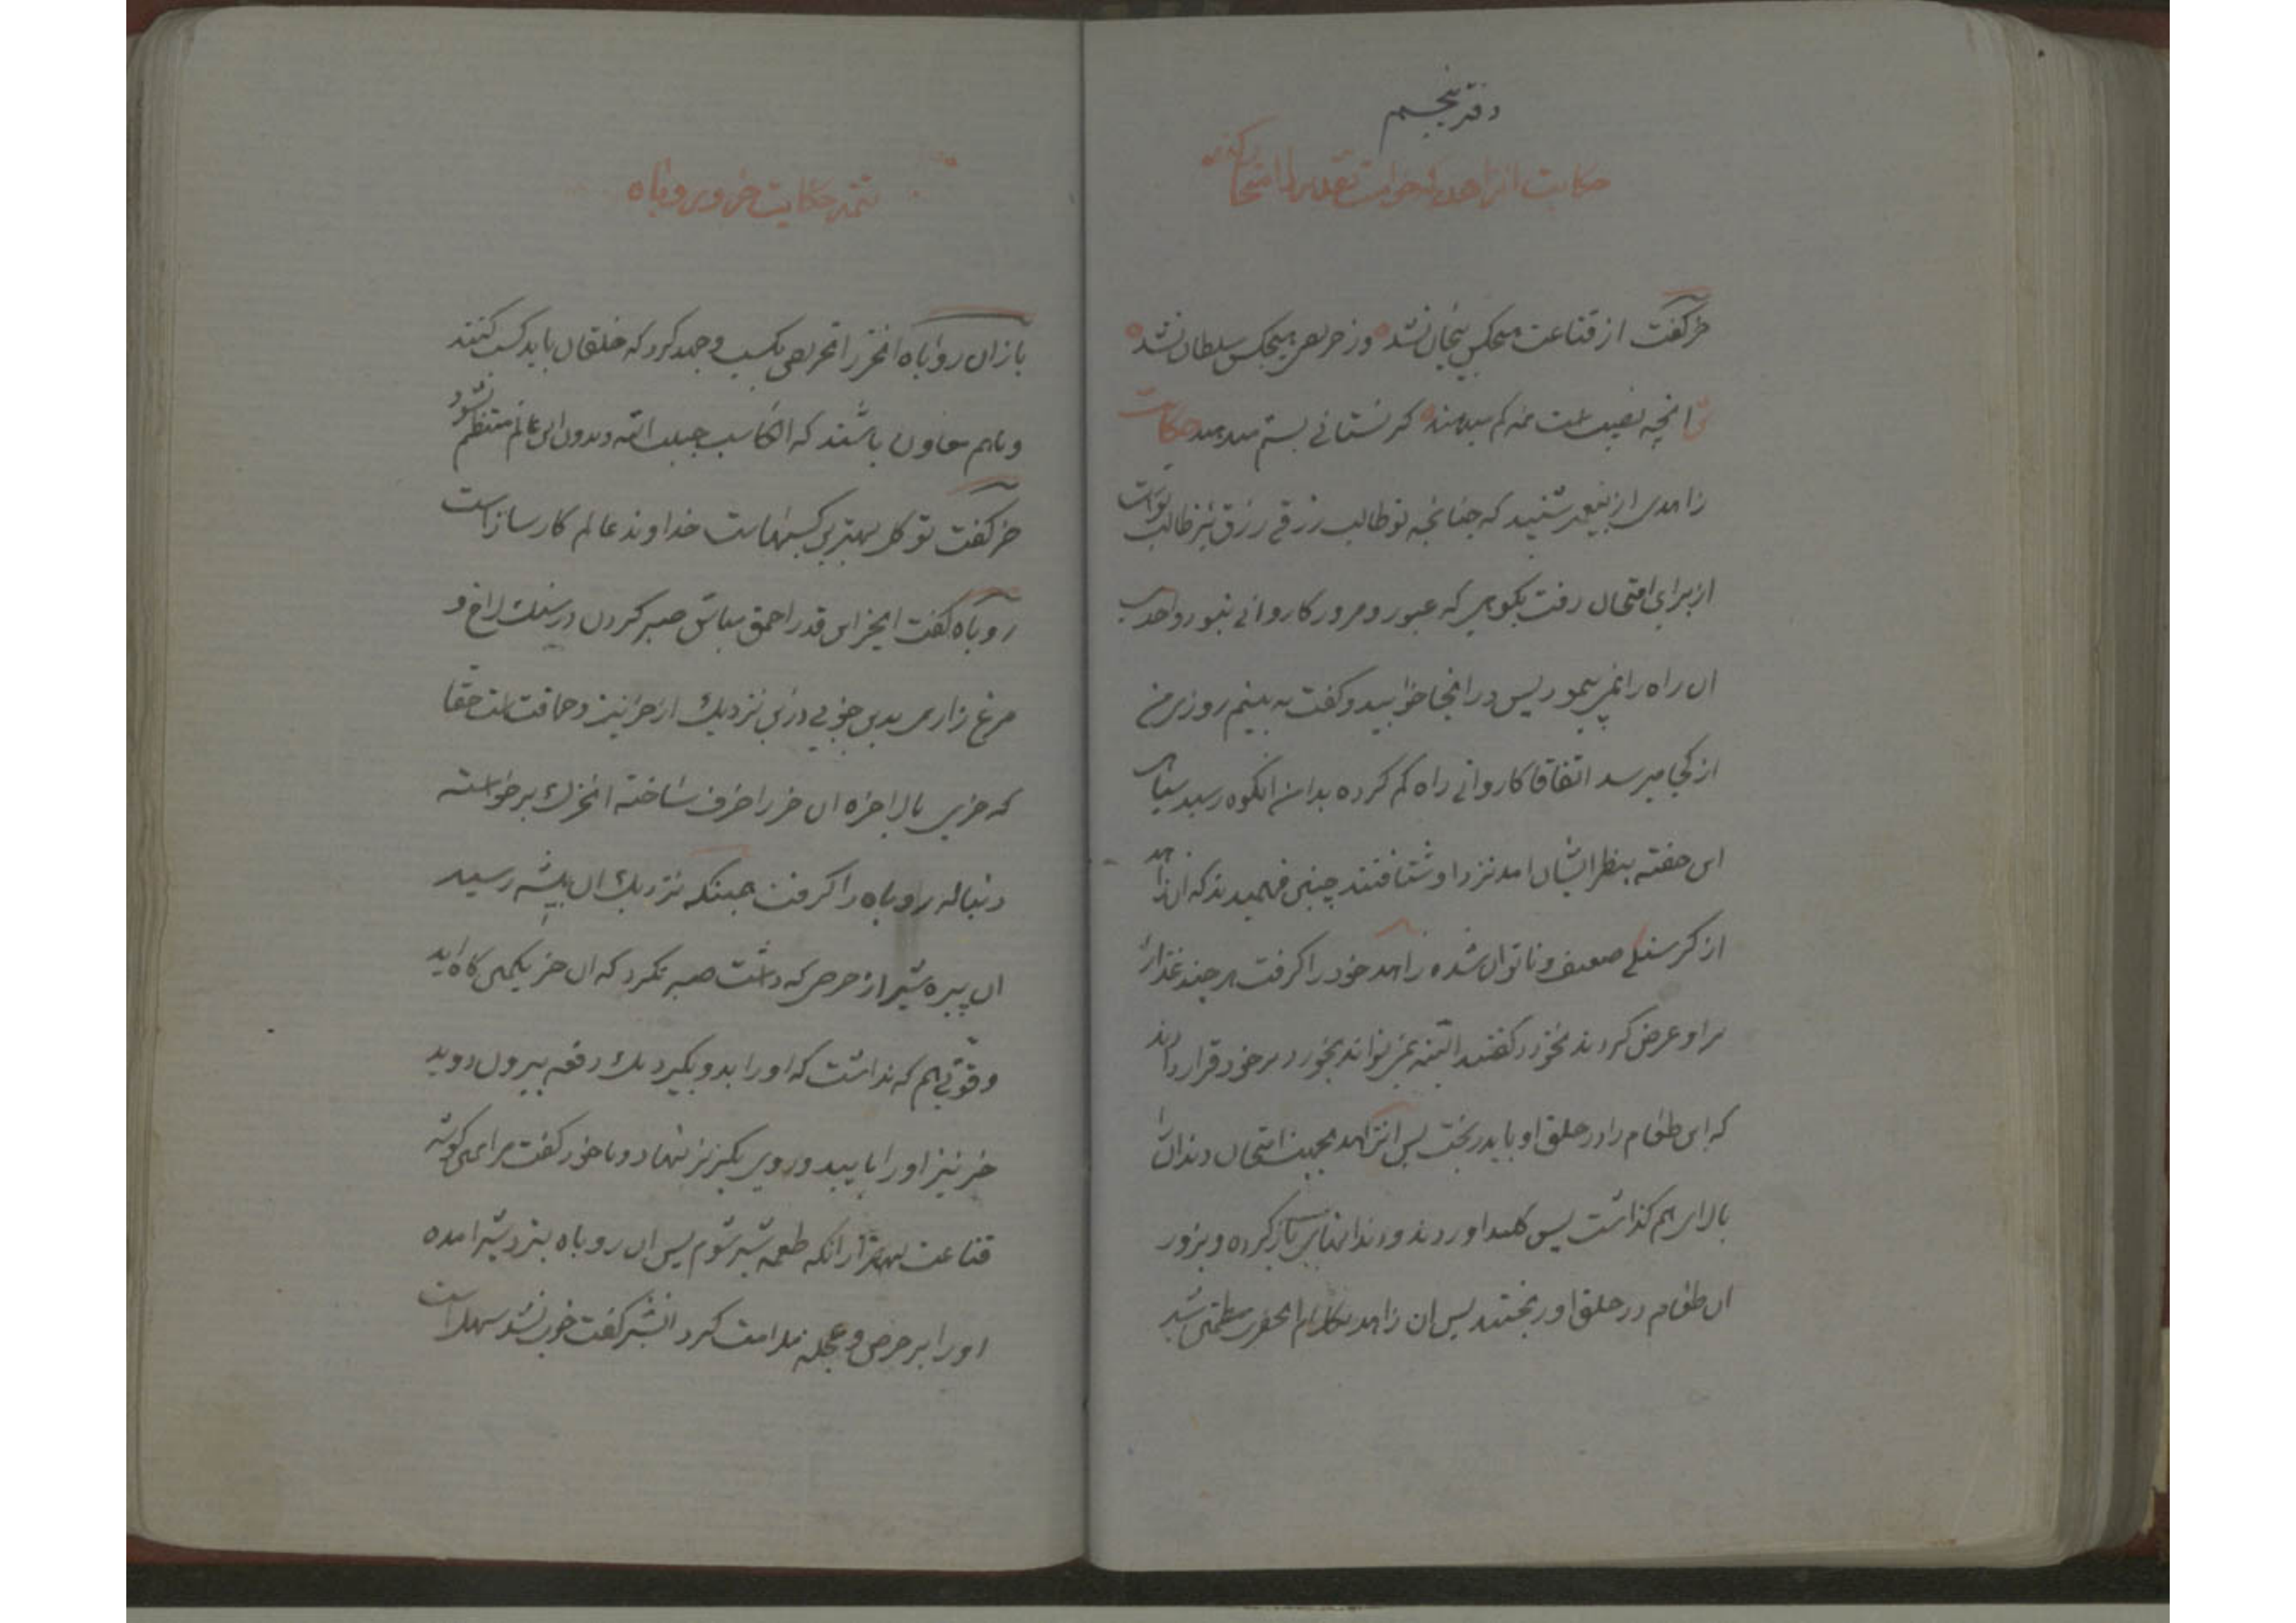 دفتر پنجم
حکایت انزاهد که خواست تقدیر را امتحان کند
خر گفت از قناعت هیچکس بیجان نشد وز حریصی هیچکس سلطان نشد
انچه نصیب است نه کم میدهند گر نستانی بستم میدهند حکایت
زاهدی از پیغمبر شنید که چنانچه تو طالب رزقی رزق نیز طالب تو است
از برای امتحان رفت بکوهی که عبور و مرور کاروانی نبود و احدی
ان راه را نمی پیمود پس در انجا خوابید و گفت به بینم روزی من
از کجا میرسد اتفاقا کاروانی راه گم کرده بدامن انکوه رسید سیاهی
این خفته بنظر ایشان امد نزد او شتافتند چنین فهمیدند که ان زاهد
از گرسنگی ضعیف و ناتوان شده زاهد خود را گرفت هر چند غذائی
براو عرض کردند نخورد گفتند البته نمی تواند بخورد بر خود قرار دادند
که این طعام را در حلق او باید ریخت پس انزاهد بجهت امتحان دندان را
بالای هم گذاشت پس کلید اوردند و دندانهایش باز کرده و بزور
ان طعام در حلق او ریختند پس ان زاهد بکلام انحضرت مطمئن شد
تتمه حکایت خر و روباه
باز ان روباه انخر را تحریص بکسب و جهد کرد که خلقان باید کسب کنند
و باهم معاون باشند که الکاسب حبیب الله و بدون این عالم منتظم نشود
خر گفت توکل بهترین کسبهاست خداوند عالم کارساز است
روباه گفت ایخر این قدر احمق مباش صبر کردن در سنگ لاخ و
مرغ زاری بدین خوبی در این نزدیک از خرانیت و حماقت است حقا
که خری بالاخره ان خر را خرف ساخته انخرک برخواسته
دنباله روباه را گرفت همینکه نزدیک ان بیشه رسید
ان پیره شیر از حرص که داشت صبر نکرد که ان خر بکمین گاه اید
و قوتی هم که نداشت که او را بدو بگیرد یک دفعه بیرون دوید
خر نیز او را پایید و روی بگریز نهاد و با خود گفت مرا همین گوشه
قناعت بهتر از انکه طعمه شیر شوم پس ان روباه بنزد شیر امده
او را بر حرص و عجله ملامت کرد انشیر گفت خوب نشد سهل است